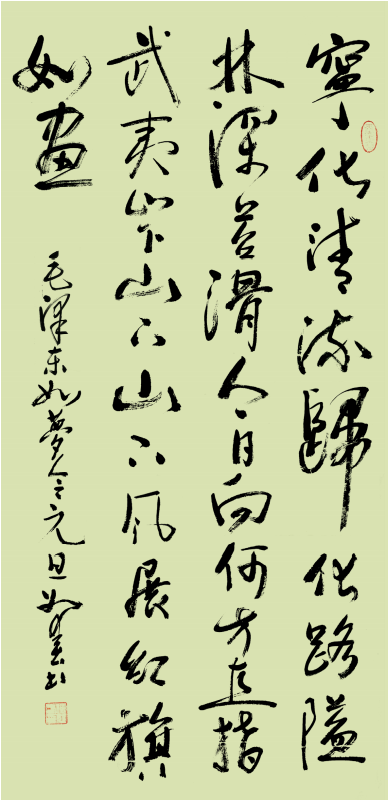 寧化清流歸化路隘
林深苔滑今日向何方直指
武夷山下山下山下风展红旗
如畫
毛澤东如夢令元旦书